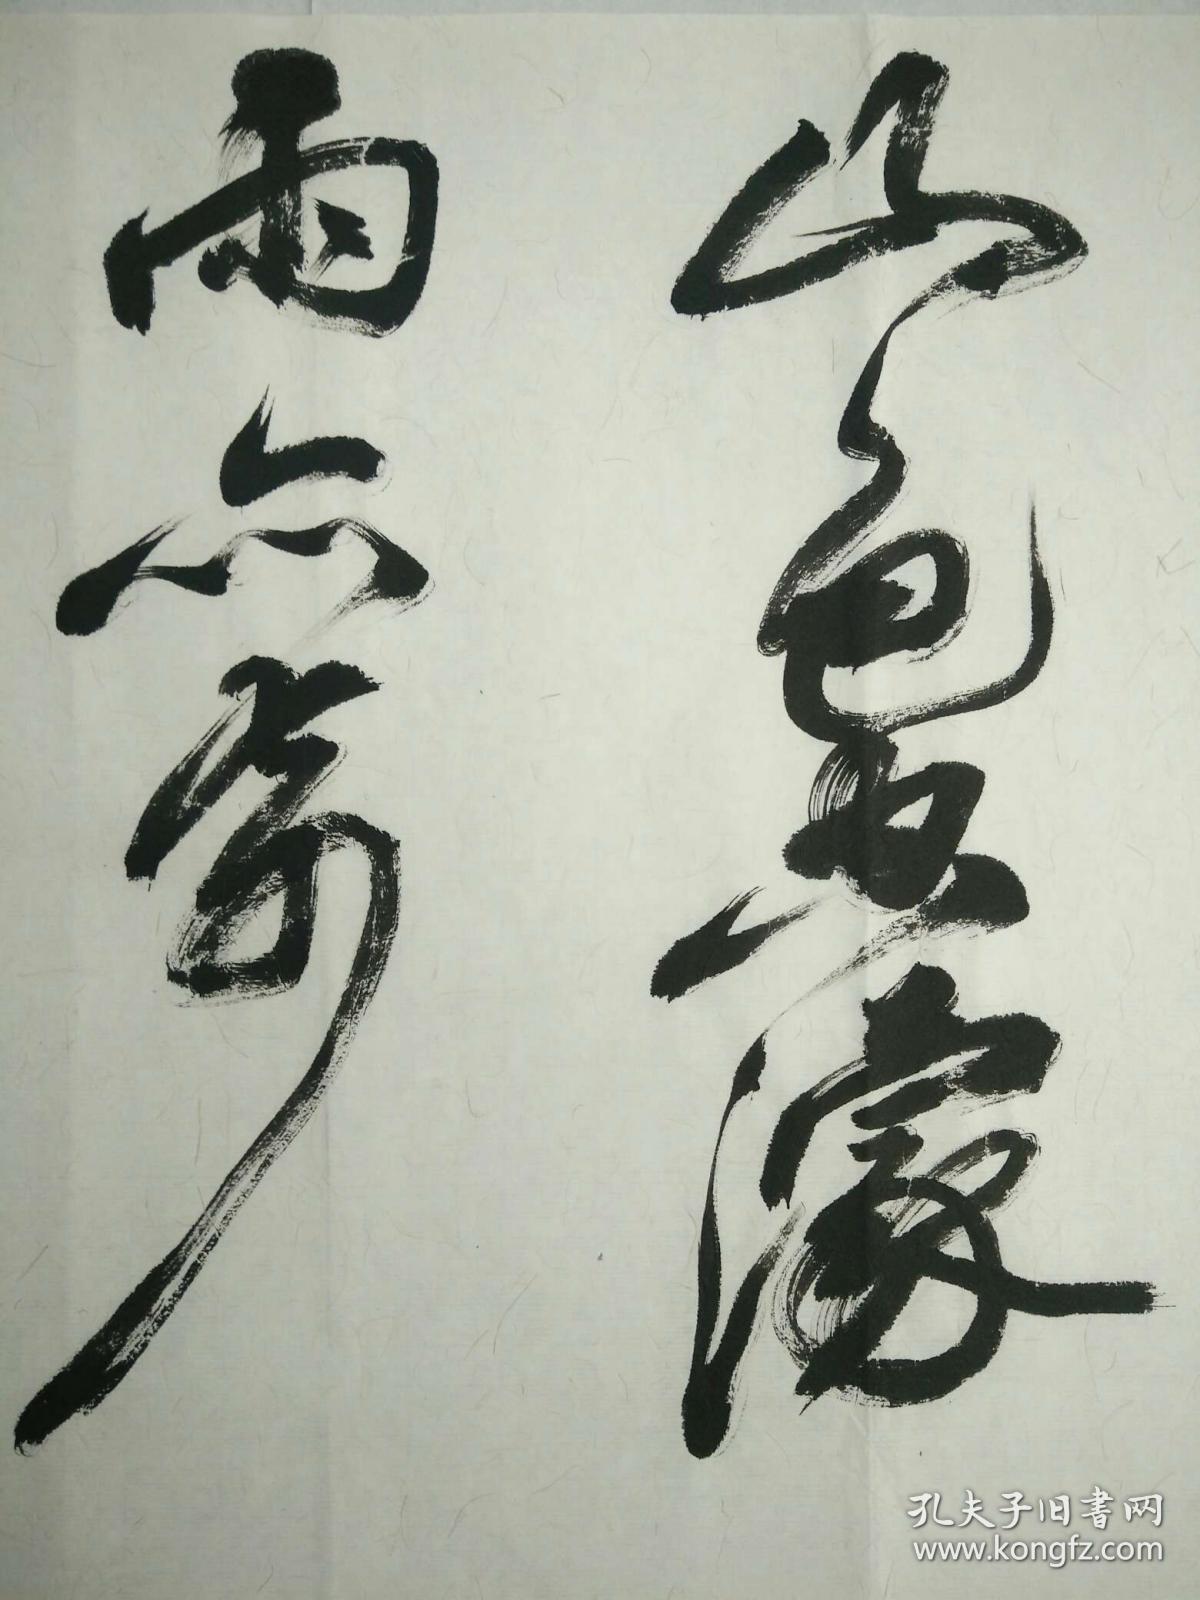 山色空濛
雨亦奇
孔夫子旧书网
www.kongfz.com